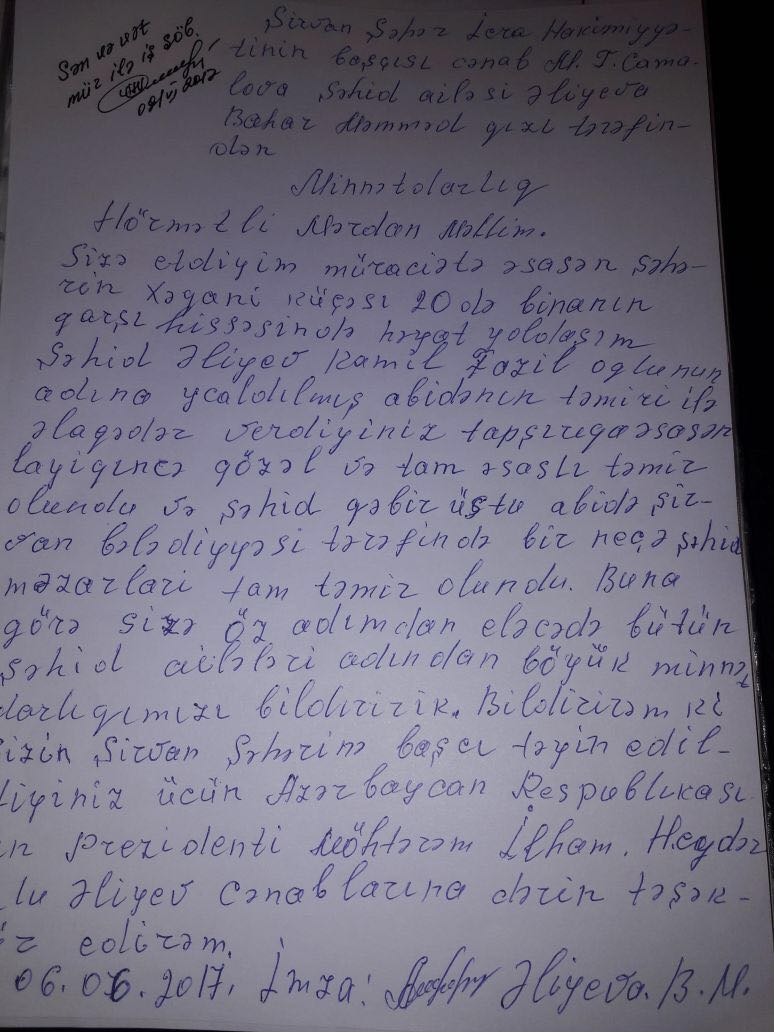 Sən və vət
mür ilə iş şöb.
09/VI 2017
Şirvan Şəhər İcra Hakimiyyə-
tinin başçısı cənab M. T. Cama-
lova Şəhid ailəsi Əliyeva
Bahar Məmməd qızı tərəfin-
dən
Minnətdarlıq
Hörmətli Mərdan Məllim.
Sizə etdiyim müraciətə əsasən Şəhə-
rin Xəqani küçəsi 20 də binanın
qarşı hissəsində həyat yoldaşım
Şəhid Əliyev Kamil Fazil oglunun
adına ycaldılmış abidənin təmiri ilə
əlaqədər verdiyiniz tapşırıqa əsasən
layiqincə gözəl və tam əsaslı təmir
olundu və şəhid qəbir üstu abidə şir-
van bələdiyyəsi tərəfində bir neçə şəhid
məzarlari tam təmir olundu. Buna
görə sizə öz adımdan eləcədə bütün
şəhid ailələri adından böyük minnət
darlıqımızı bildiririk. Bildirirəm ki
sizin Şirvan Şəhərinə başcı təyin edil-
diyiniz ücün Azərbaycan Respublikası
n prezidenti Möhtərəm İlham. Heydər
lu Əliyev Cənablarına dərin təşək-
ür edirəm.
06.06.2017. İmza: Əliyeva. B. M.